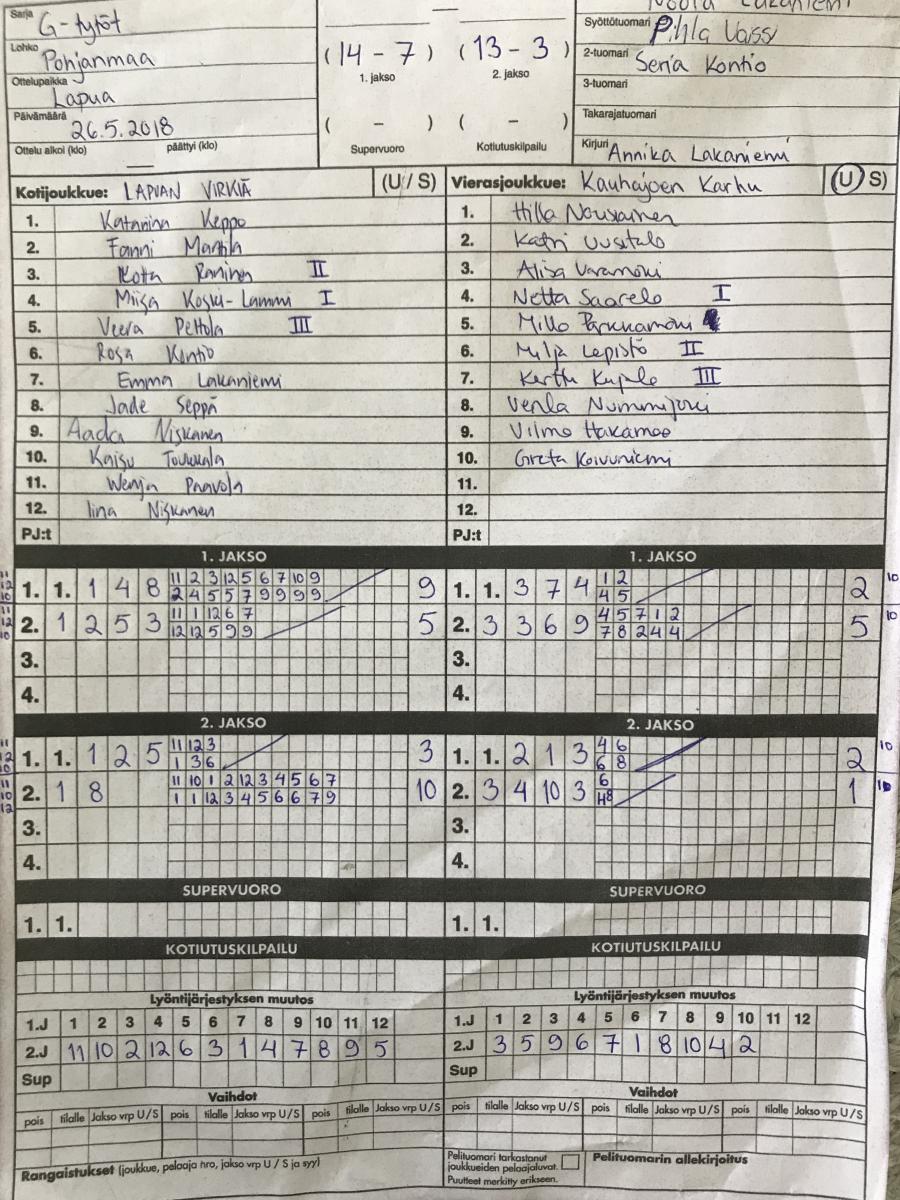 Sarja G-tytöt
Lohko Pohjanmaa
Ottelupaikka Lapua
Päivämäärä 26.5.2018
Ottelu alkoi (klo) — päättyi (klo)
( 14 - 7 ) ( 13 - 3 )
1. jakso 2. jakso
( - ) ( - )
Supervuoro Kotiutuskilpailu
Lakaniemi
Syöttötuomari Pihla Vaissi
2-tuomari Seria Kontio
3-tuomari
Takarajatuomari
Kirjuri Annika Lakaniemi
Kotijoukkue: LAPUAN VIRKIÄ (U / S)
1. Katariina Keppo
2. Fanni Mantila
3. Raninen II
4. Miisa Koski-Lammi I
5. Veera Peltola III
6. Rosa Kontio
7. Emma Lakaniemi
8. Jade Seppä
9. Aada Niskanen
10. Kaisu Toukkala
11. Wenja Paavola
12. Iina Niskanen
PJ:t
Vierasjoukkue: Kauhajoen Karhu (U / S)
1. Hilla Nousiainen
2. Katri Uusitalo
3. Alisa
4. Netta Saarela I
5. Milla
6. Milja Lepistö II
7. Kerttu Kujala III
8. Venla Nummijoki
9. Vilma Hakamaa
10. Greta Koivuniemi
11.
12.
PJ:t
1. JAKSO
11 12 10
1. 1. 1 4 8 11 2 3 12 5 6 7 10 9 9
2 4 5 5 7 9 9 9 9
11 12 10
2. 1 2 5 3 11 1 12 6 7 5
12 12 5 9 9
3.
4.
1. JAKSO
1. 1. 3 7 4 1 2 2 10
4 5
2. 3 3 6 9 4 5 7 1 2 5 10
7 8 2 4 4
3.
4.
2. JAKSO
11 12 10
1. 1. 1 2 5 11 12 3 3
1 3 6
11 10 12
2. 1 8 11 10 1 2 12 3 4 5 6 7 10
1 1 12 3 4 5 6 6 7 9
3.
4.
2. JAKSO
1. 1. 2 1 3 4 6 2 10
6 8
2. 3 4 10 3 6 1
8
3.
4.
SUPERVUORO
1. 1.
SUPERVUORO
1. 1.
KOTIUTUSKILPAILU
KOTIUTUSKILPAILU
Lyöntijärjestyksen muutos
1.J 1 2 3 4 5 6 7 8 9 10 11 12
2.J 11 10 2 12 6 3 1 4 7 8 9 5
Sup
Lyöntijärjestyksen muutos
1.J 1 2 3 4 5 6 7 8 9 10 11 12
2.J 3 5 9 6 7 1 8 10 4 2
Sup
Vaihdot
pois tilalle Jakso vrp U/S pois tilalle Jakso vrp U/S pois tilalle Jakso vrp U/S
Vaihdot
pois tilalle Jakso vrp U/S pois tilalle Jakso vrp U/S pois tilalle Jakso vrp U/S
Rangaistukset (joukkue, pelaaja nro, jakso vrp U / S ja syy)
Pelituomari tarkastanut
joukkueiden pelaajaluvat.
Puutteet merkitty erikseen.
Pelituomarin allekirjoitus